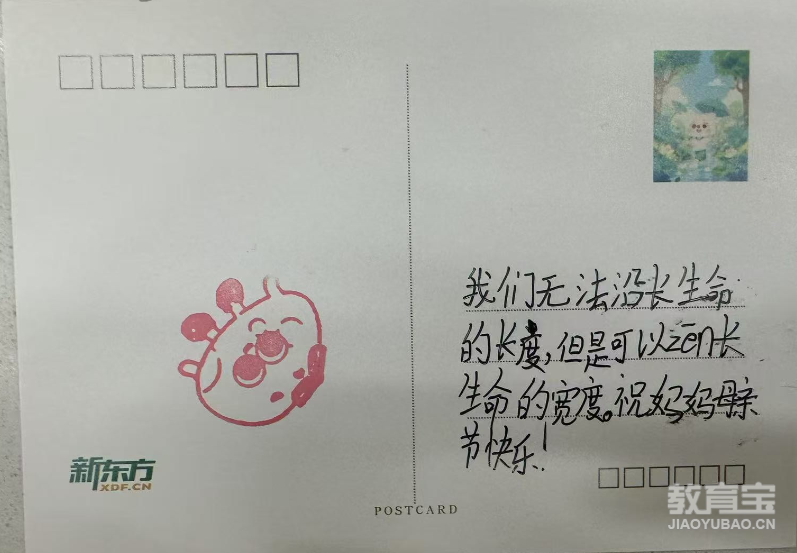 我们无法沿长生命
的长度，但是可以zēn长
生命的宽度。祝妈妈母亲
节快乐！
新东方
XDF.CN
POSTCARD
教育宝
JIAOYUBAO.CN